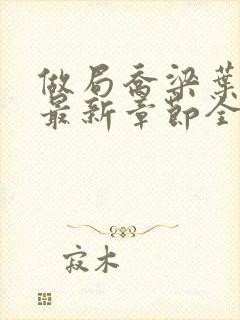 做局乔梁叶
最新章节全
寂木